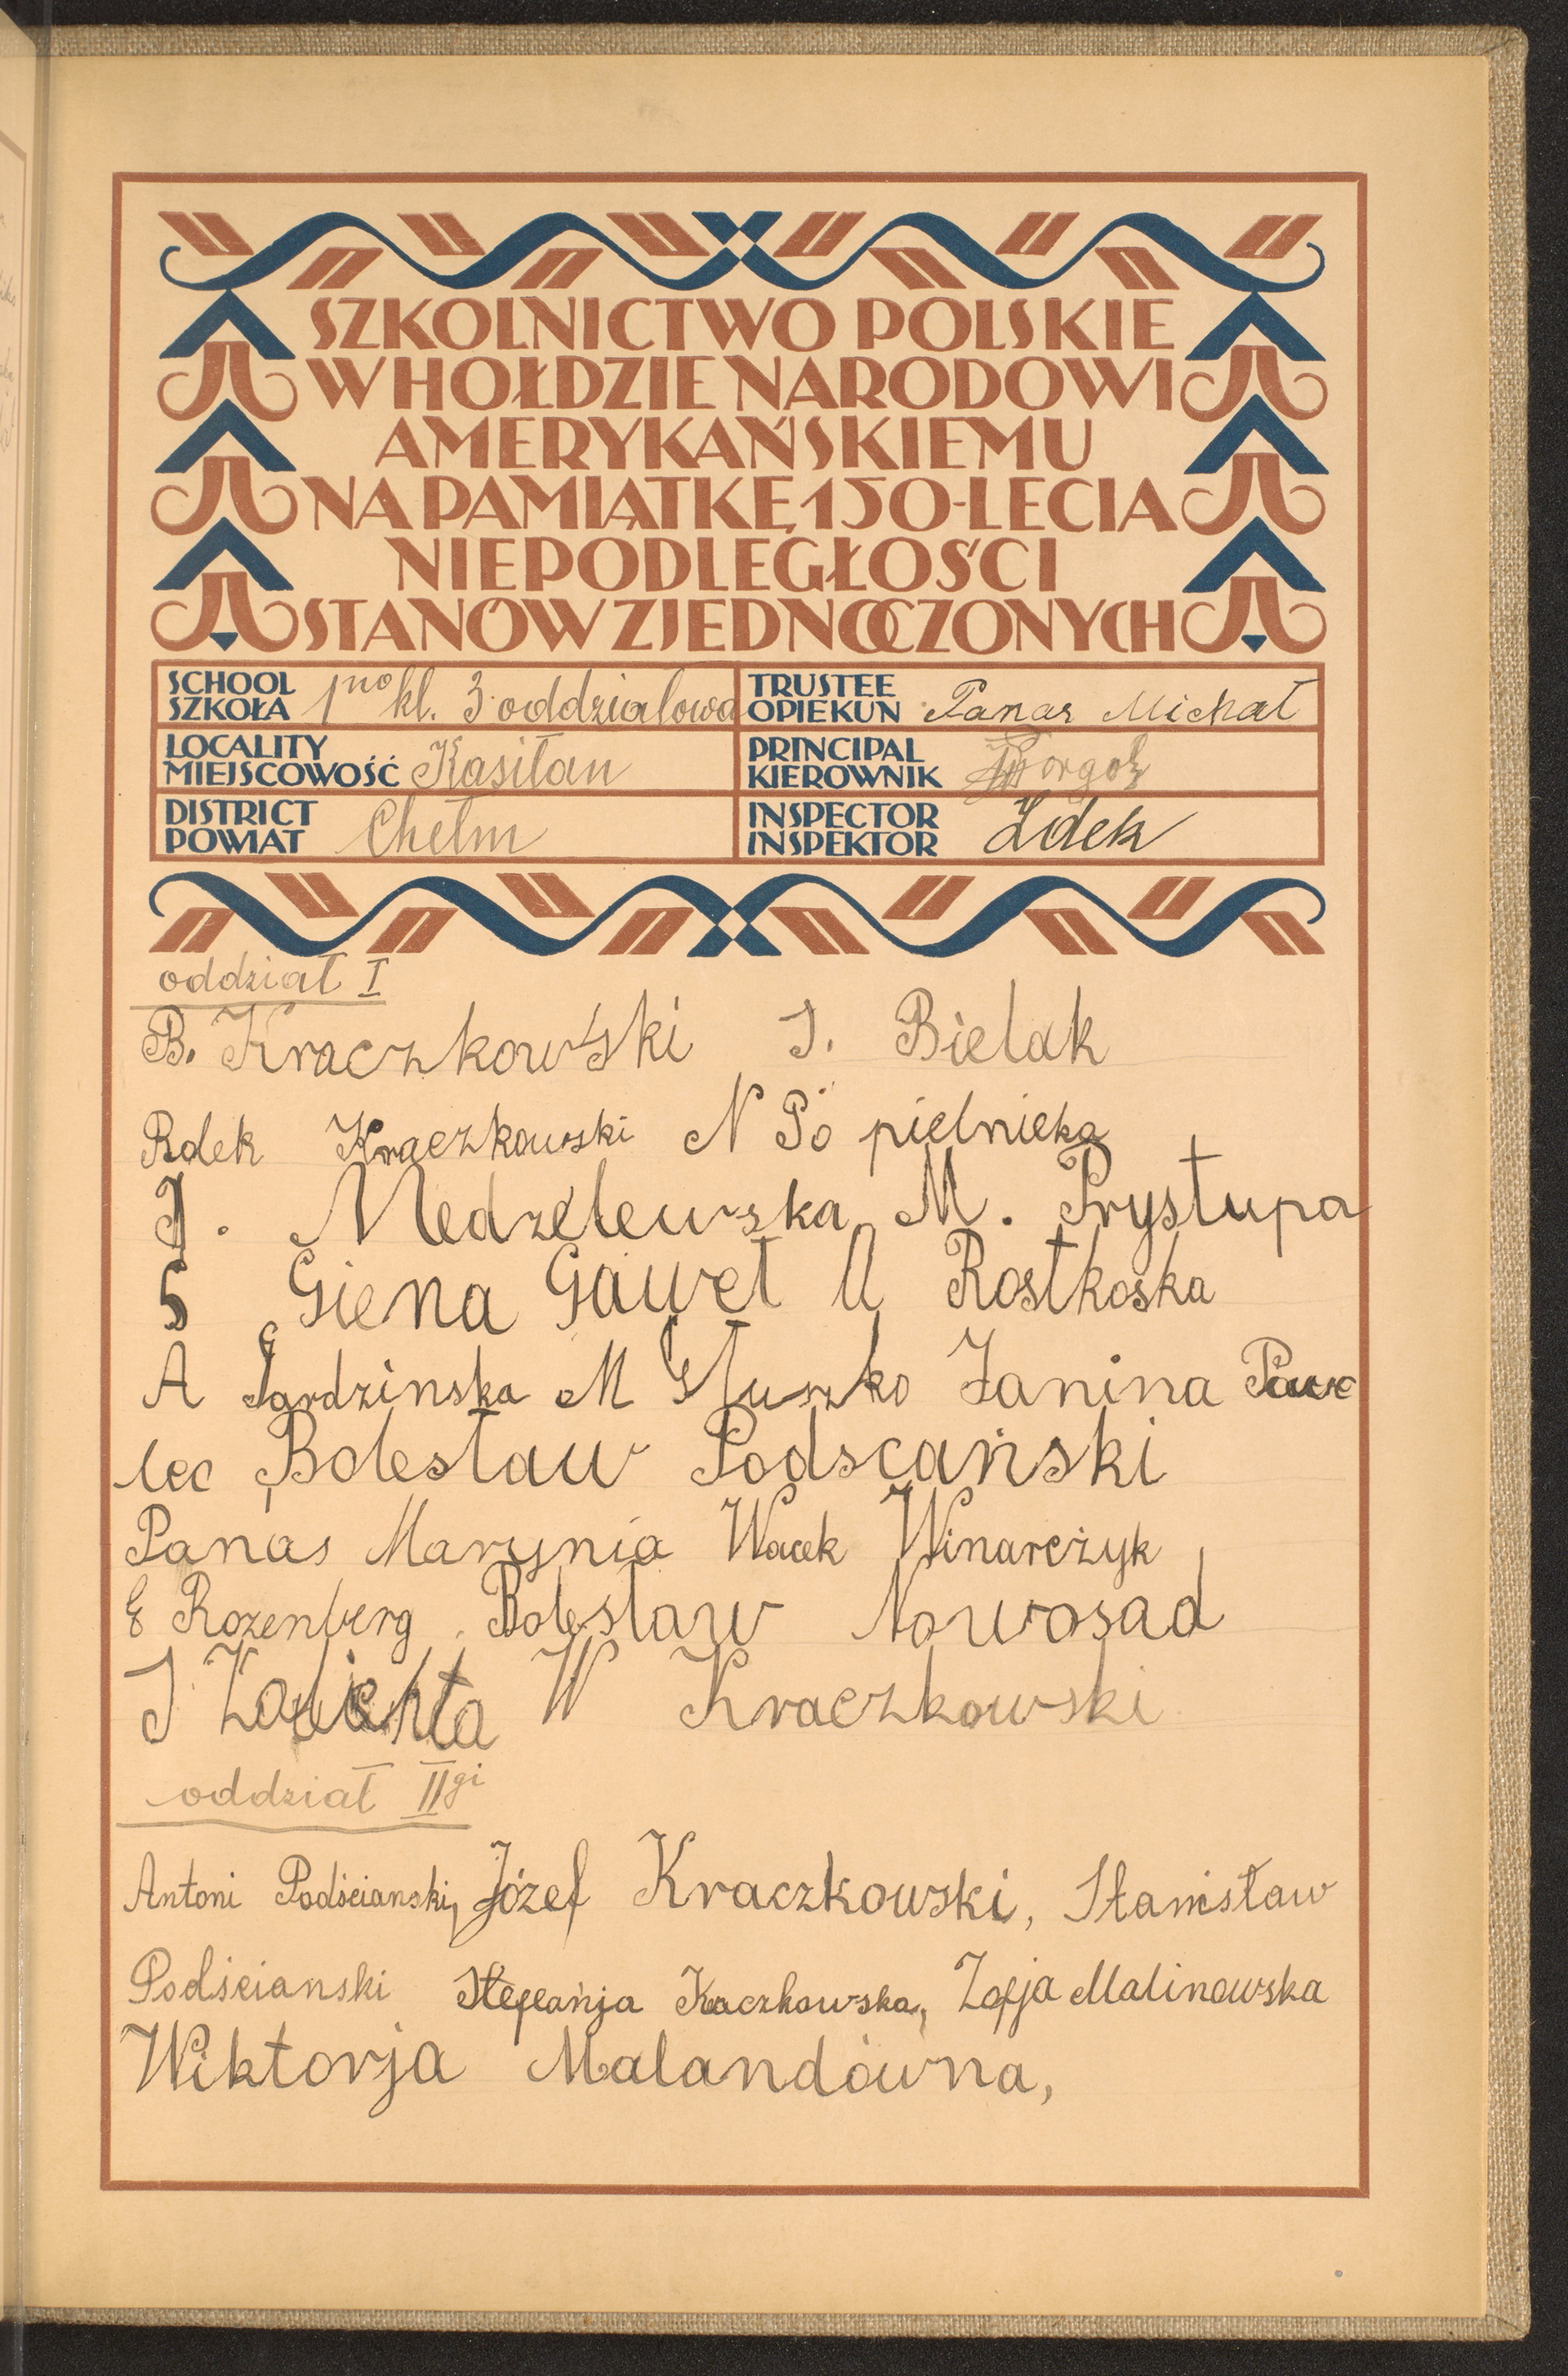 SZKOLNICTWO POLSKIE
W HOŁDZIE NARODOWI
AMERYKAŃSKIEMU
NA PAMIĄTKĘ 150-LECIA
NIEPODLEGŁOŚCI
STANÓW ZJEDNOCZONYCH
SCHOOL
SZKOŁA 1no kl. 3 oddziałowa
TRUSTEE
OPIEKUN Panas Michał
LOCALITY
MIEJSCOWOŚĆ Kasiłan
PRINCIPAL
KIEROWNIK
DISTRICT
POWIAT Chełm
INSPECTOR
INSPEKTOR Zdek
oddział I
B. Kraczkowski J. Bielak
Bolek Kraczkowski N Po pielnicka
J. Medzelewska M. Prystupa
S Giena Gaweł A Rostkoska
A Jardzinska M Głuszko Janina Paw
lec Bolesław Podscański
Panas Marynia Wacek Winarczyk
E Rozenberg Bolesław Nowosad
J W Kraczkowski
oddział IIgi
Antoni Podścianski, Józef Kraczkowski, Stanisław
Podścianski Stefanja Kaczkowska, Zofja Malinowska
Wiktorja Malandówna,